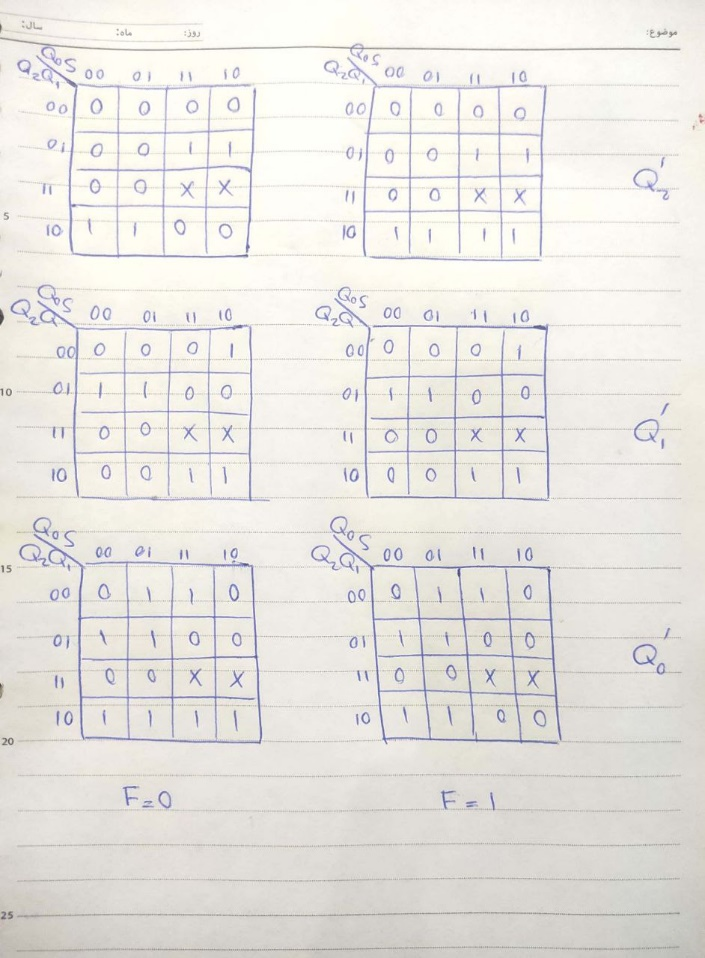 موضوع:
روز:
ماه:
سال:
Q₀S
Q₂Q₁ 00 01 11 10
00 0 0 0 0
01 0 0 1 1
11 0 0 X X
10 1 1 0 0
Q₀S
Q₂Q₁ 00 01 11 10
00 0 0 0 0
01 0 0 1 1
11 0 0 X X
10 1 1 1 1
Q₂'
5
Q₀S
Q₂Q 00 01 11 10
00 0 0 0 1
01 1 1 0 0
11 0 0 X X
10 0 0 1 1
Q₀S
Q₂Q 00 01 11 10
00 0 0 0 1
01 1 1 0 0
11 0 0 X X
10 0 0 1 1
Q₁'
10
Q₀S
Q₂Q₁ 00 01 11 10
00 0 1 1 0
01 1 1 0 0
11 0 0 X X
10 1 1 1 1
Q₀S
Q₂Q₁ 00 01 11 10
00 0 1 1 0
01 1 1 0 0
11 0 0 X X
10 1 1 0 0
Q₀'
15
20
F=0
F=1
25